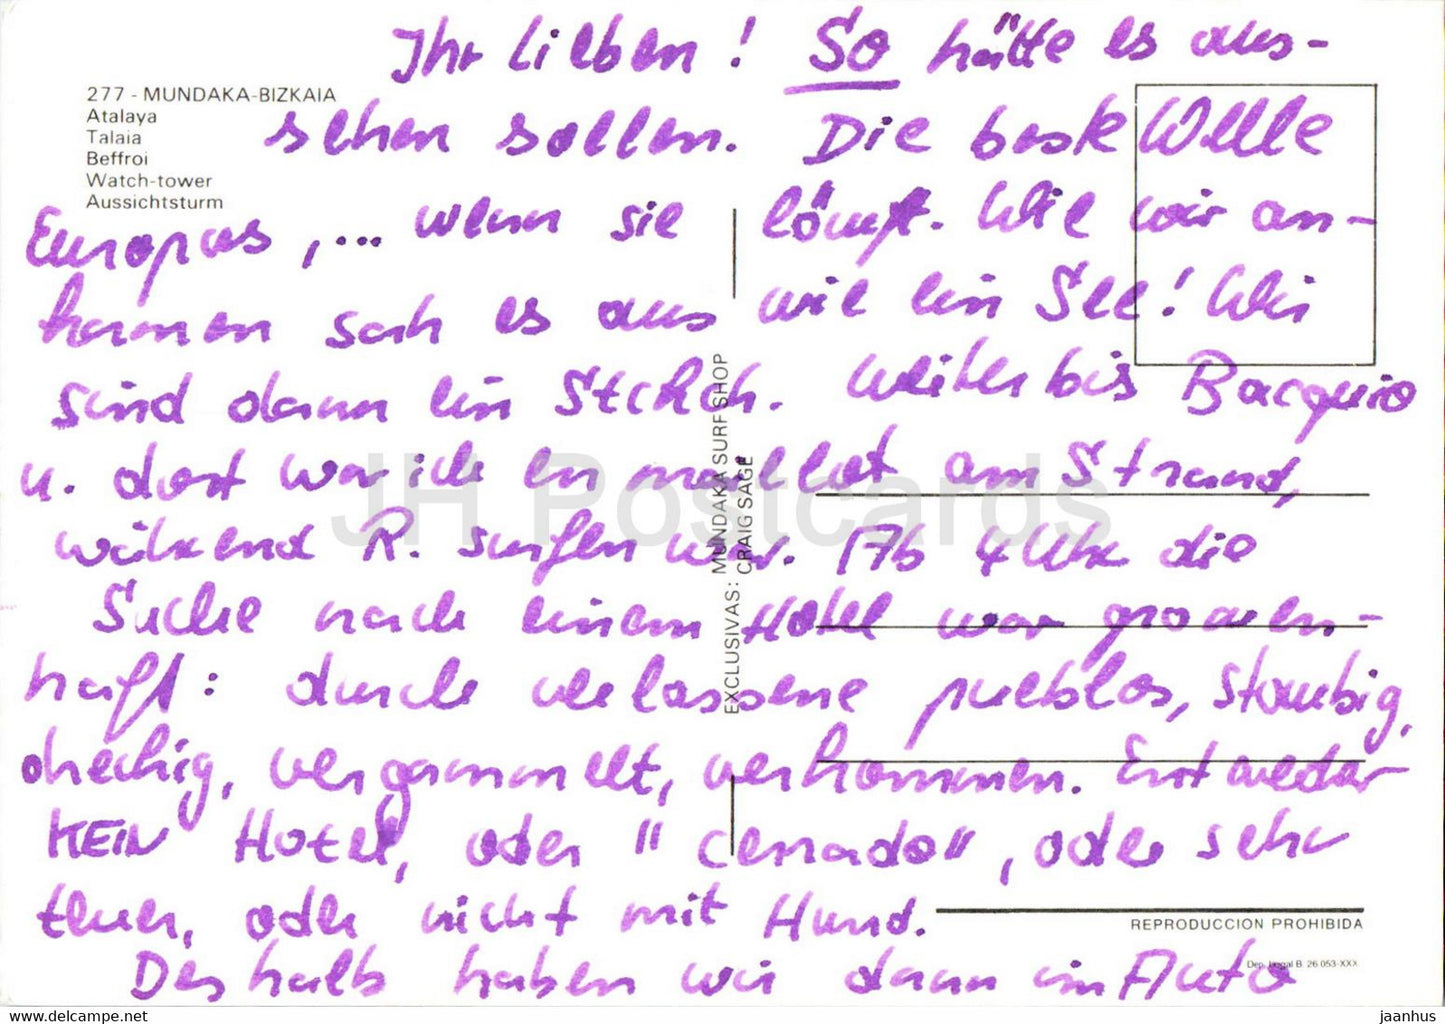 Ihr Lieben! So hätte es aus-
sehen sollen. Die beste Welle
Europas, ... wenn sie läuft. Wie wir an-
kamen sah es aus wie ein See! Wir
sind dann ein Stück weiter bis Bacquio
u. dort war ich en maillot am Strand,
während R. surfen war. Ab 4 Uhr die
Suche nach einem Hotel war grauen-
haft: durch verlassene pueblos, staubig,
dreckig, vergammelt, verkommen. Entweder
KEIN Hotel, oder "cerrado", oder sehr
teuer, oder nicht mit Hund.
Deshalb haben wir dann im Auto
277 - MUNDAKA-BIZKAIA
Atalaya
Talaia
Beffroi
Watch-tower
Aussichtsturm
EXCLUSIVAS: MUNDAKA SURF SHOP
CRAIG SAGE
REPRODUCCION PROHIBIDA
Dep. Legal B. 26 053-XXX
JH Postcards
www.jhpostcards.com
jaanhus